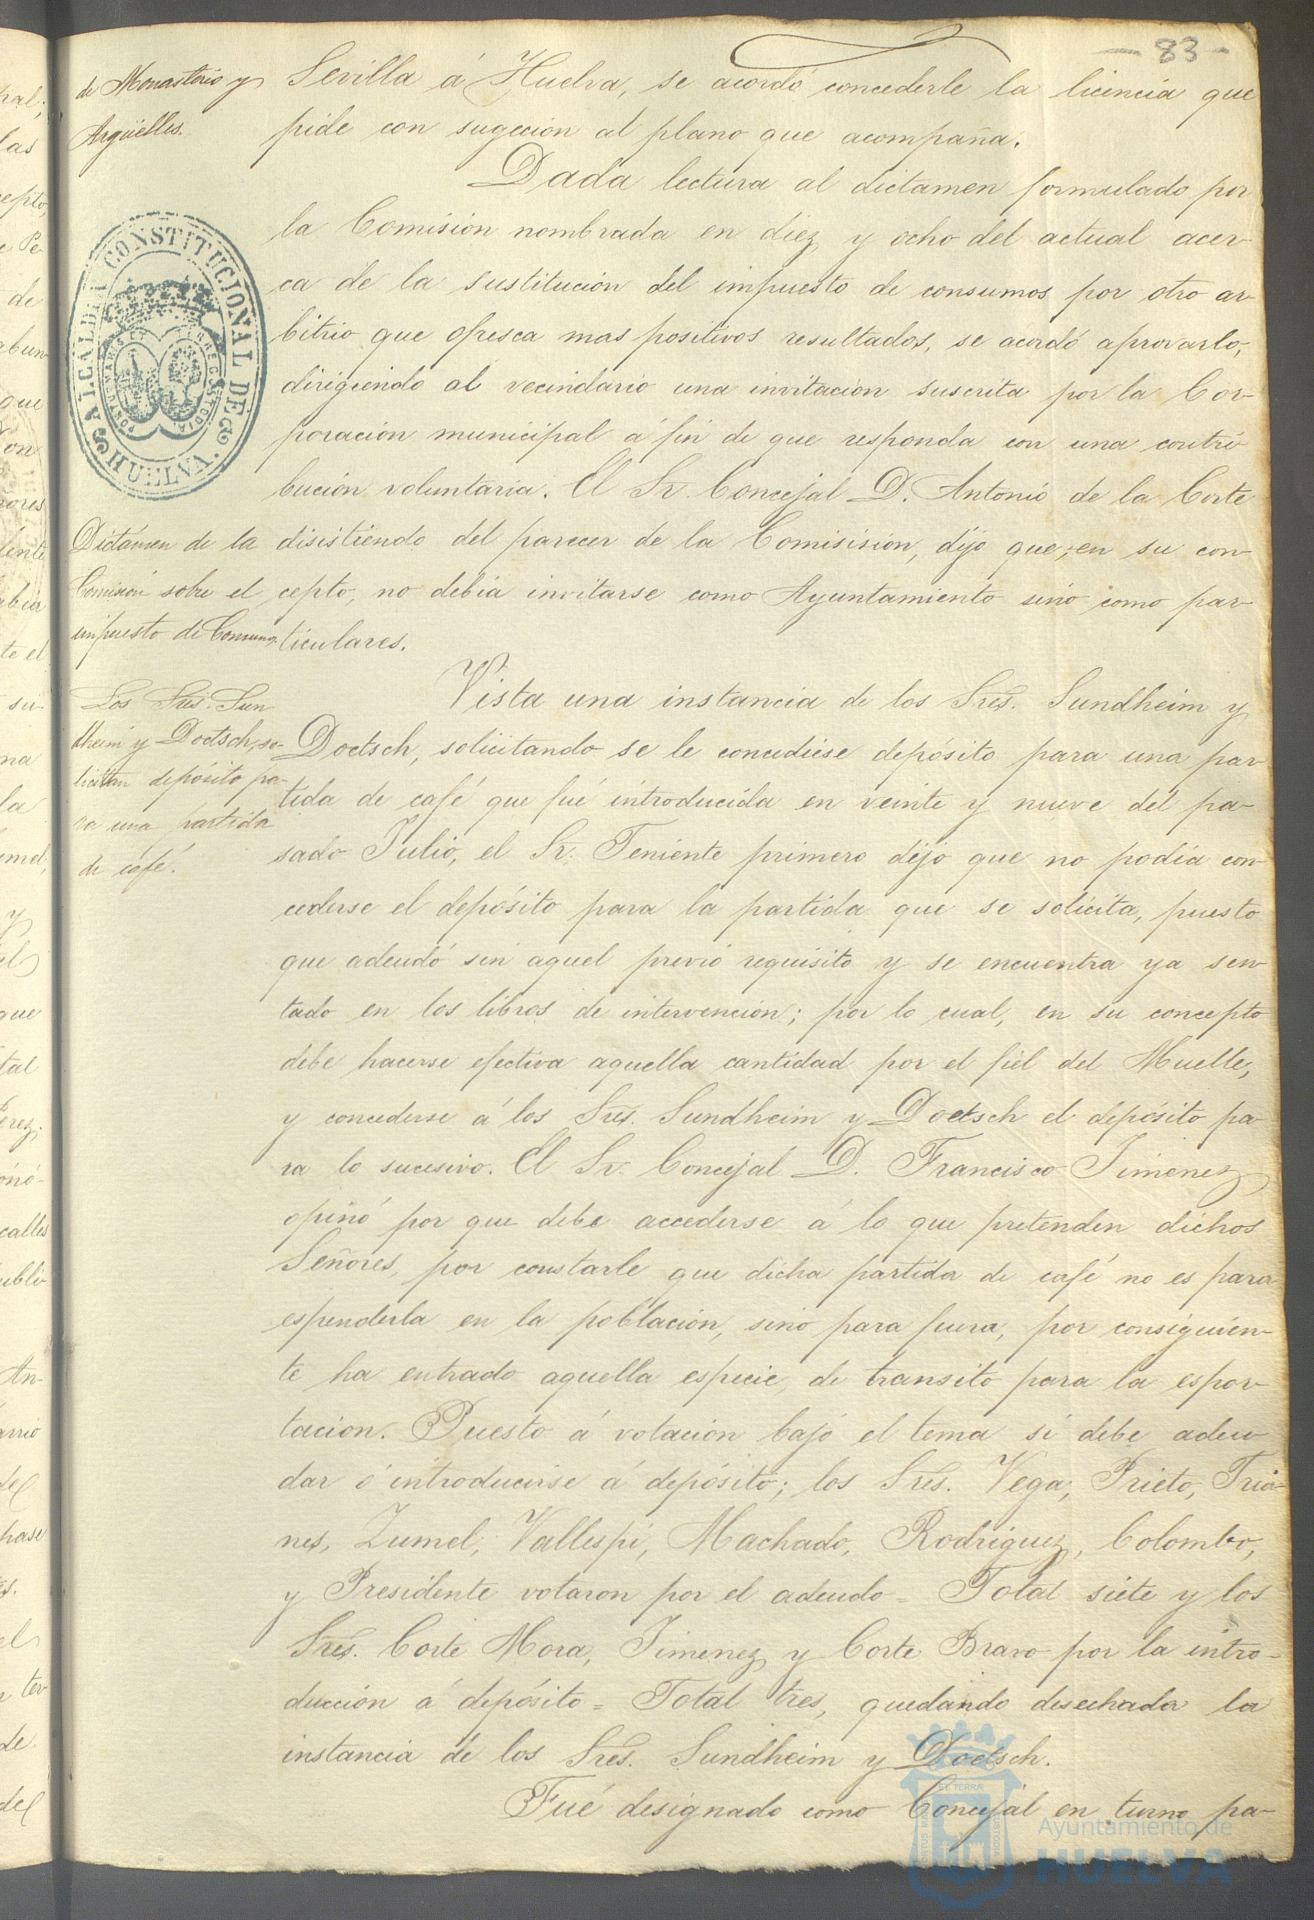 - 83 -
de Monasterio y
Argüelles.
Sevilla á Huelva, se acordó concederle la licencia que
pide con sugeción al plano que acompaña.
Dada lectura al dictamen formulado por
la Comisión nombrada en diez y ocho del actual acer-
ca de la sustitución del impuesto de consumos por otro ar-
bitrio que ofresca mas positivos resultados, se acordó aprovarlo,
dirigiendo al vecindario una invitación suscrita por la Cor-
poración municipal á fin de que responda con una contri
bución voluntaria. El Sr. Concejal D. Antonio de la Corte
disistiendo del parecer de la Comisision, dijo que, en su con-
cepto, no debia invitarse como Ayuntamiento sino como par-
ticulares.
ALCALDIA CONSTITUCIONAL DE
HUELVA.
PORTUS MARIS ET TERRE CUSTODIA
Dictámen de la
Comisión sobre el
impuesto de Consumos.
Vista una instancia de los Sres. Sundheim y
Doetsch, solicitando se le concediese depósito para una par-
tida de café que fué introducida en veinte y nueve del pa-
sado Julio, el Sr. Teniente primero dijo que no podía con-
cederse el depósito para la partida que se solicita, puesto
que adeudó sin aquel previo requisito y se encuentra ya sen-
tado en los libros de intervención; por lo cual, en su concepto
debe hacerse efectiva aquella cantidad por el fiel del Muelle,
y concederse á los Sres. Sundheim y Doetsch el depósito pa-
ra lo sucesivo. El Sr. Concejal D. Francisco Jimenez
opinó por que debe accederse á lo que pretenden dichos
Señores, por constarle que dicha partida de café no es para
espenderla en la población, sinó para fuera, por consiguien-
te ha entrado aquella especie, de transito para la espor-
tacion. Puesto á votación bajo el tema si debe adeu-
dar ó introducirse á depósito; los Sres. Vega, Prieto, Tria-
nes, Zumel, Vallespi, Machado, Rodriguez, Colombo,
y Presidente votaron por el adeudo = Total siete y los
Sres. Corte Mora, Jimenez y Corte Bravo por la intro-
ducción á depósito = Total tres, quedando desechada la
instancia de los Sres. Sundheim y Doetsch.
Los Sres. Sun
dheim y Doetsch, so-
licitan depósito pa-
ra una partida
de café.
Fué designado como Concejal en turno pa-
Ayuntamiento de
HUELVA